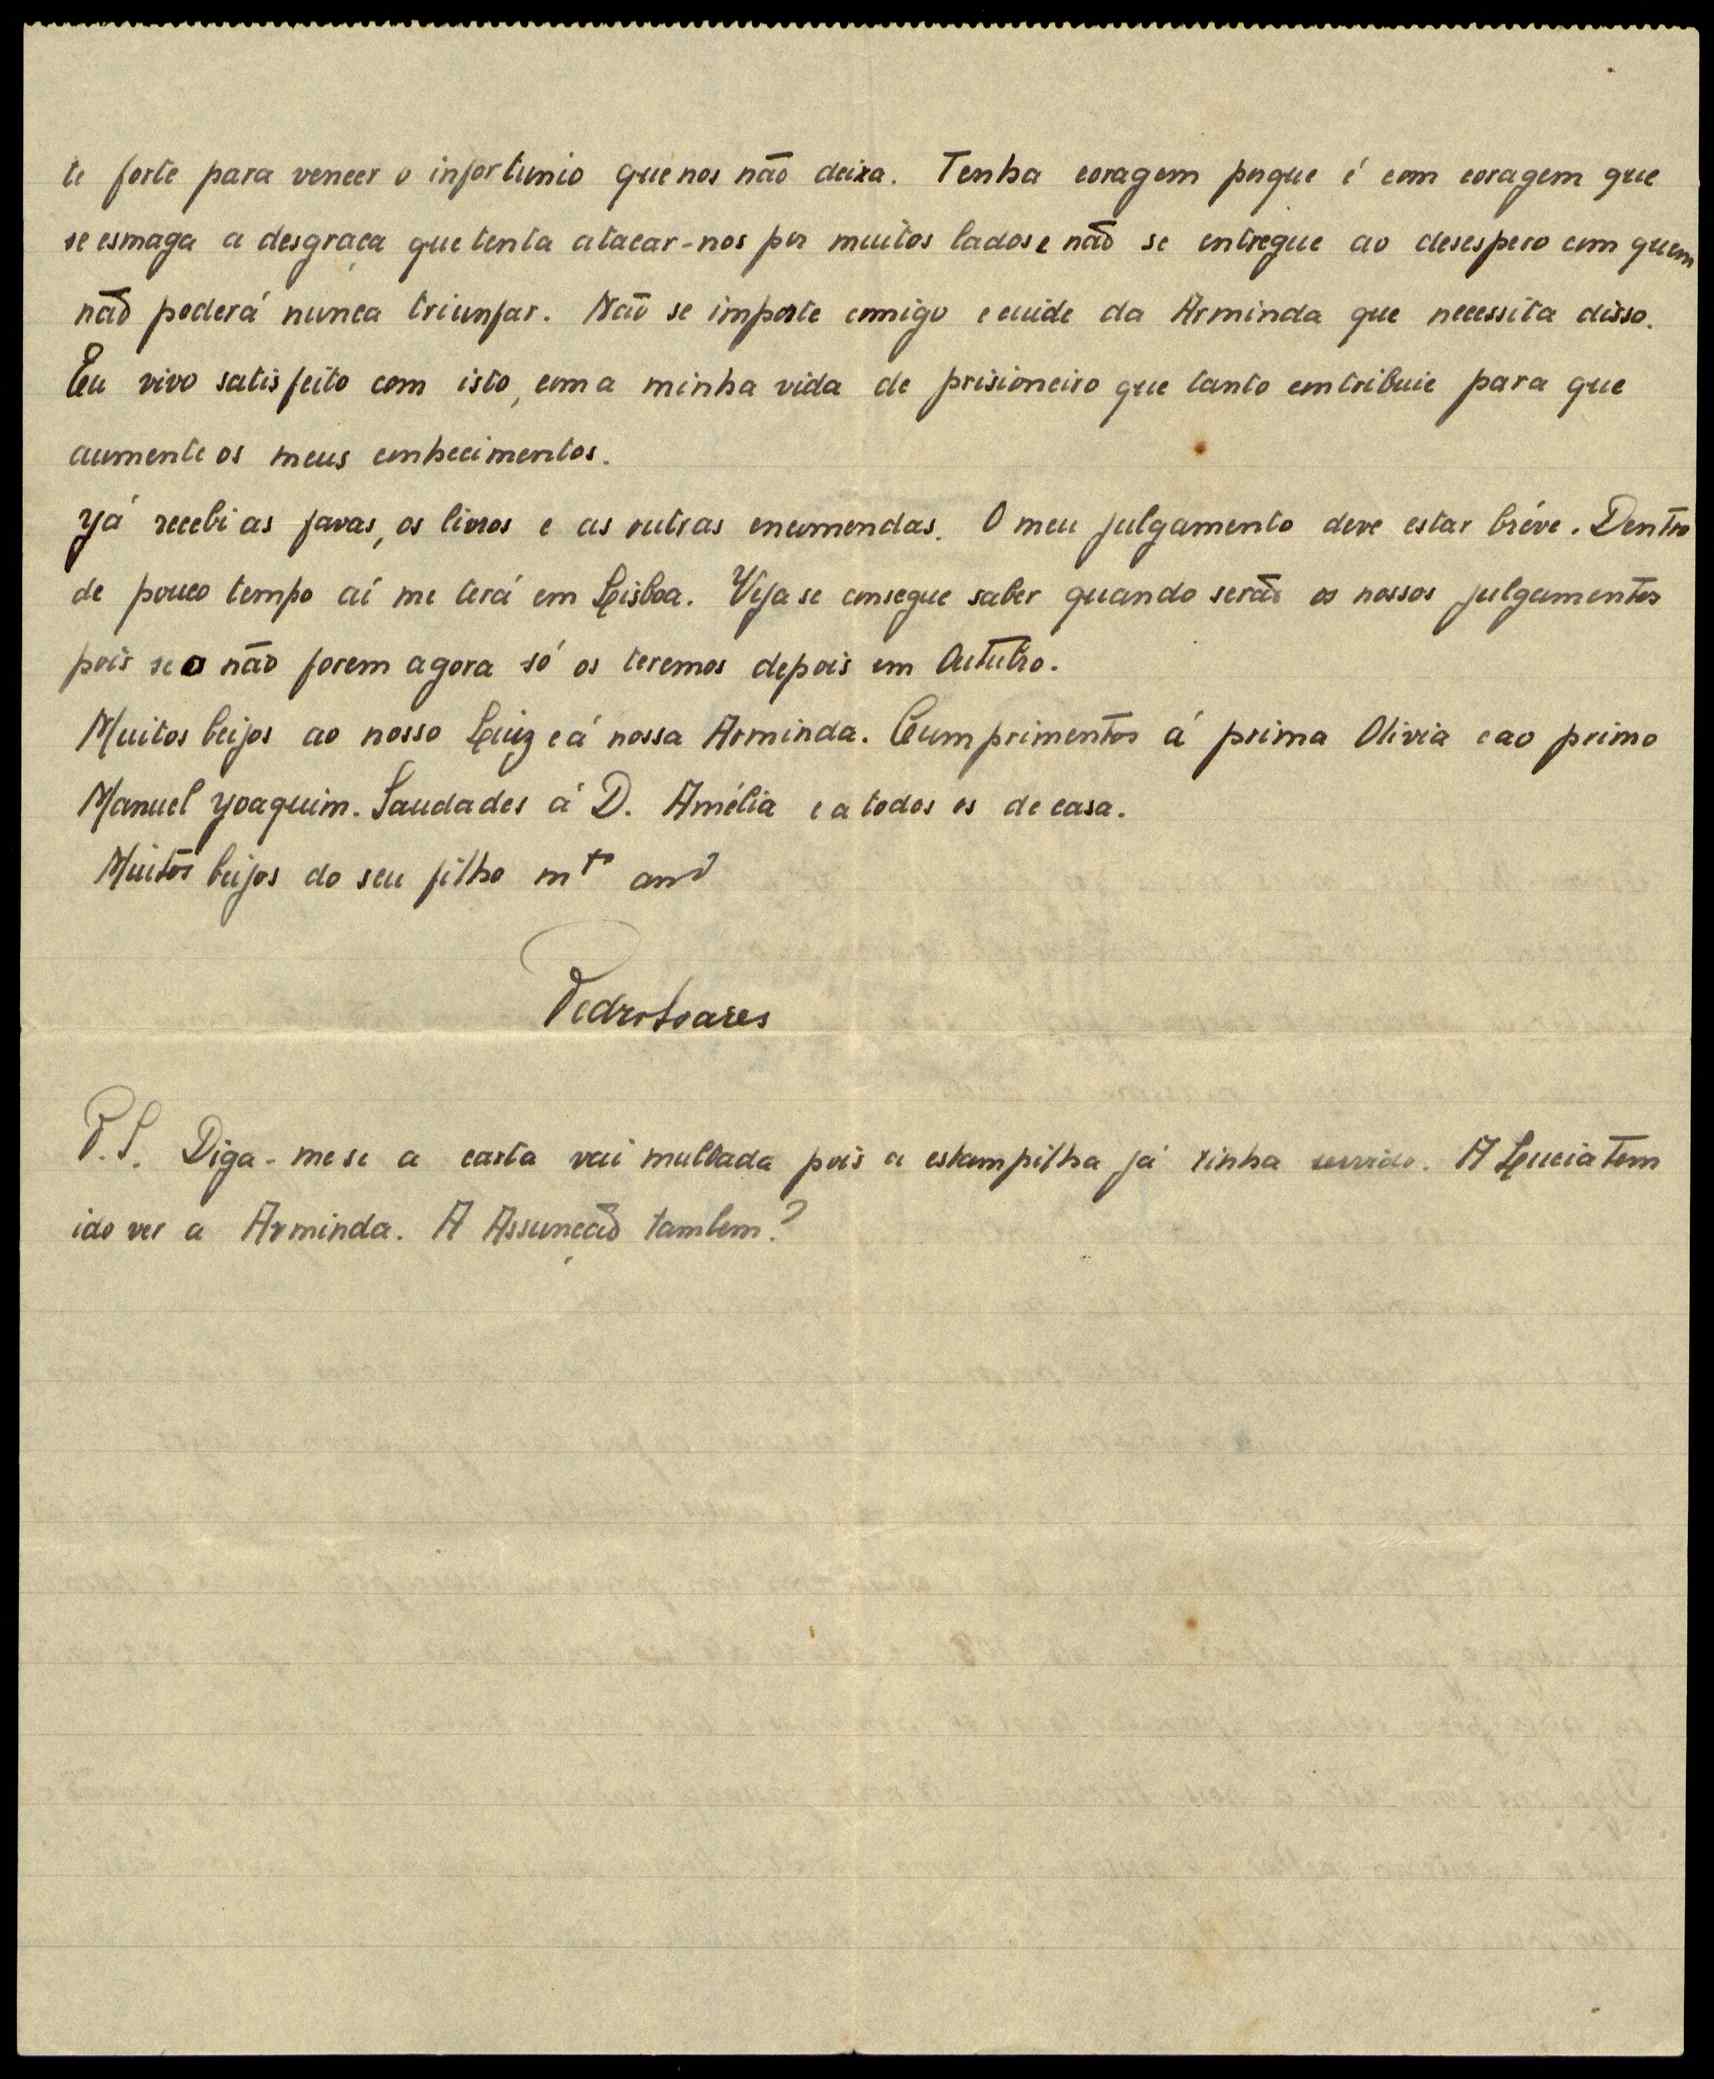 te forte para vencer o infortunio que nos não deixa. Tenha coragem porque é com coragem que
se esmaga a desgraça que tenta atacar-nos por muitos lados e não se entregue ao desespero com quem
não poderá nunca triunfar. Não se importe comigo e cuide da Arminda que necessita disso.
Eu vivo satisfeito com isto, com a minha vida de prisioneiro que tanto contribuie para que
aumente os meus conhecimentos.
Já recebi as favas, os livros e as outras encomendas. O meu julgamento deve estar bréve. Dentro
de pouco tempo aí me terá em Lisboa. Veja se consegue saber quando serão os nossos julgamentos
pois se o não forem agora só os teremos depois em Outubro.
Muitos beijos ao nosso Luiz e á nossa Arminda. Cumprimentos á prima Olivia e ao primo
Manuel Joaquim. Saudades á D. Amélia e a todos os de casa.
Muitos beijos do seu filho mto amo
Pedro Soares
P.S. Diga-me se a carta vai multada pois a estampilha já tinha servido. A Lucia tem
ido ver a Arminda. A Assunção tambem?